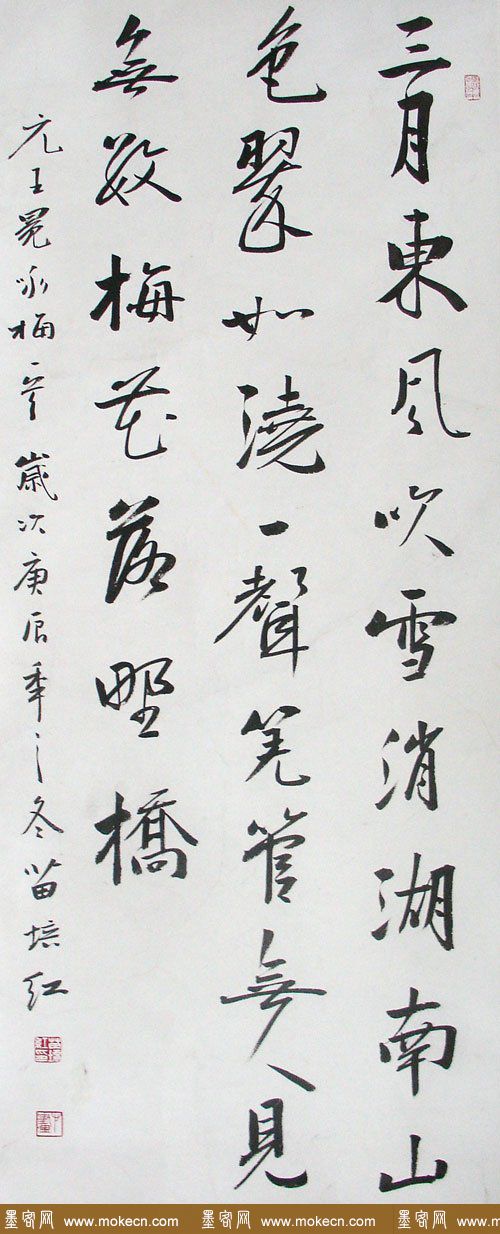 三月東風吹雪消湖南山
色翠如澆一聲羌管無人見
無數梅花落野橋
元王冕詠梅一首歲次庚辰年之冬苗培红
墨客网 www.mokecn.com 墨客网 www.mokecn.com 墨客网 www.mo